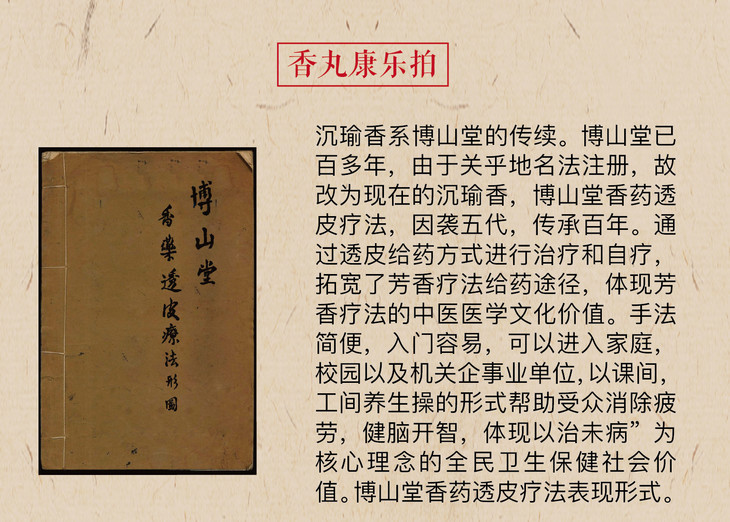 香丸康乐拍
沉瑜香系博山堂的传续。博山堂已
百多年，由于关乎地名法注册，故
改为现在的沉瑜香，博山堂香药透
皮疗法，因袭五代，传承百年。通
过透皮给药方式进行治疗和自疗，
拓宽了芳香疗法给药途径，体现芳
香疗法的中医医学文化价值。手法
简便，入门容易，可以进入家庭，
校园以及机关企事业单位，以课间，
工间养生操的形式帮助受众消除疲
劳，健脑开智，体现以治未病”为
核心理念的全民卫生保健社会价
值。博山堂香药透皮疗法表现形式。
博山堂
香藥透皮療法形圖